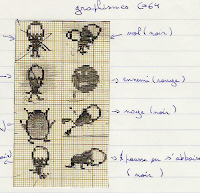 graphismes C64
vol (noir)
ennemi (rouge)
nage (noire)
pause ou s'abaisse
(noir)